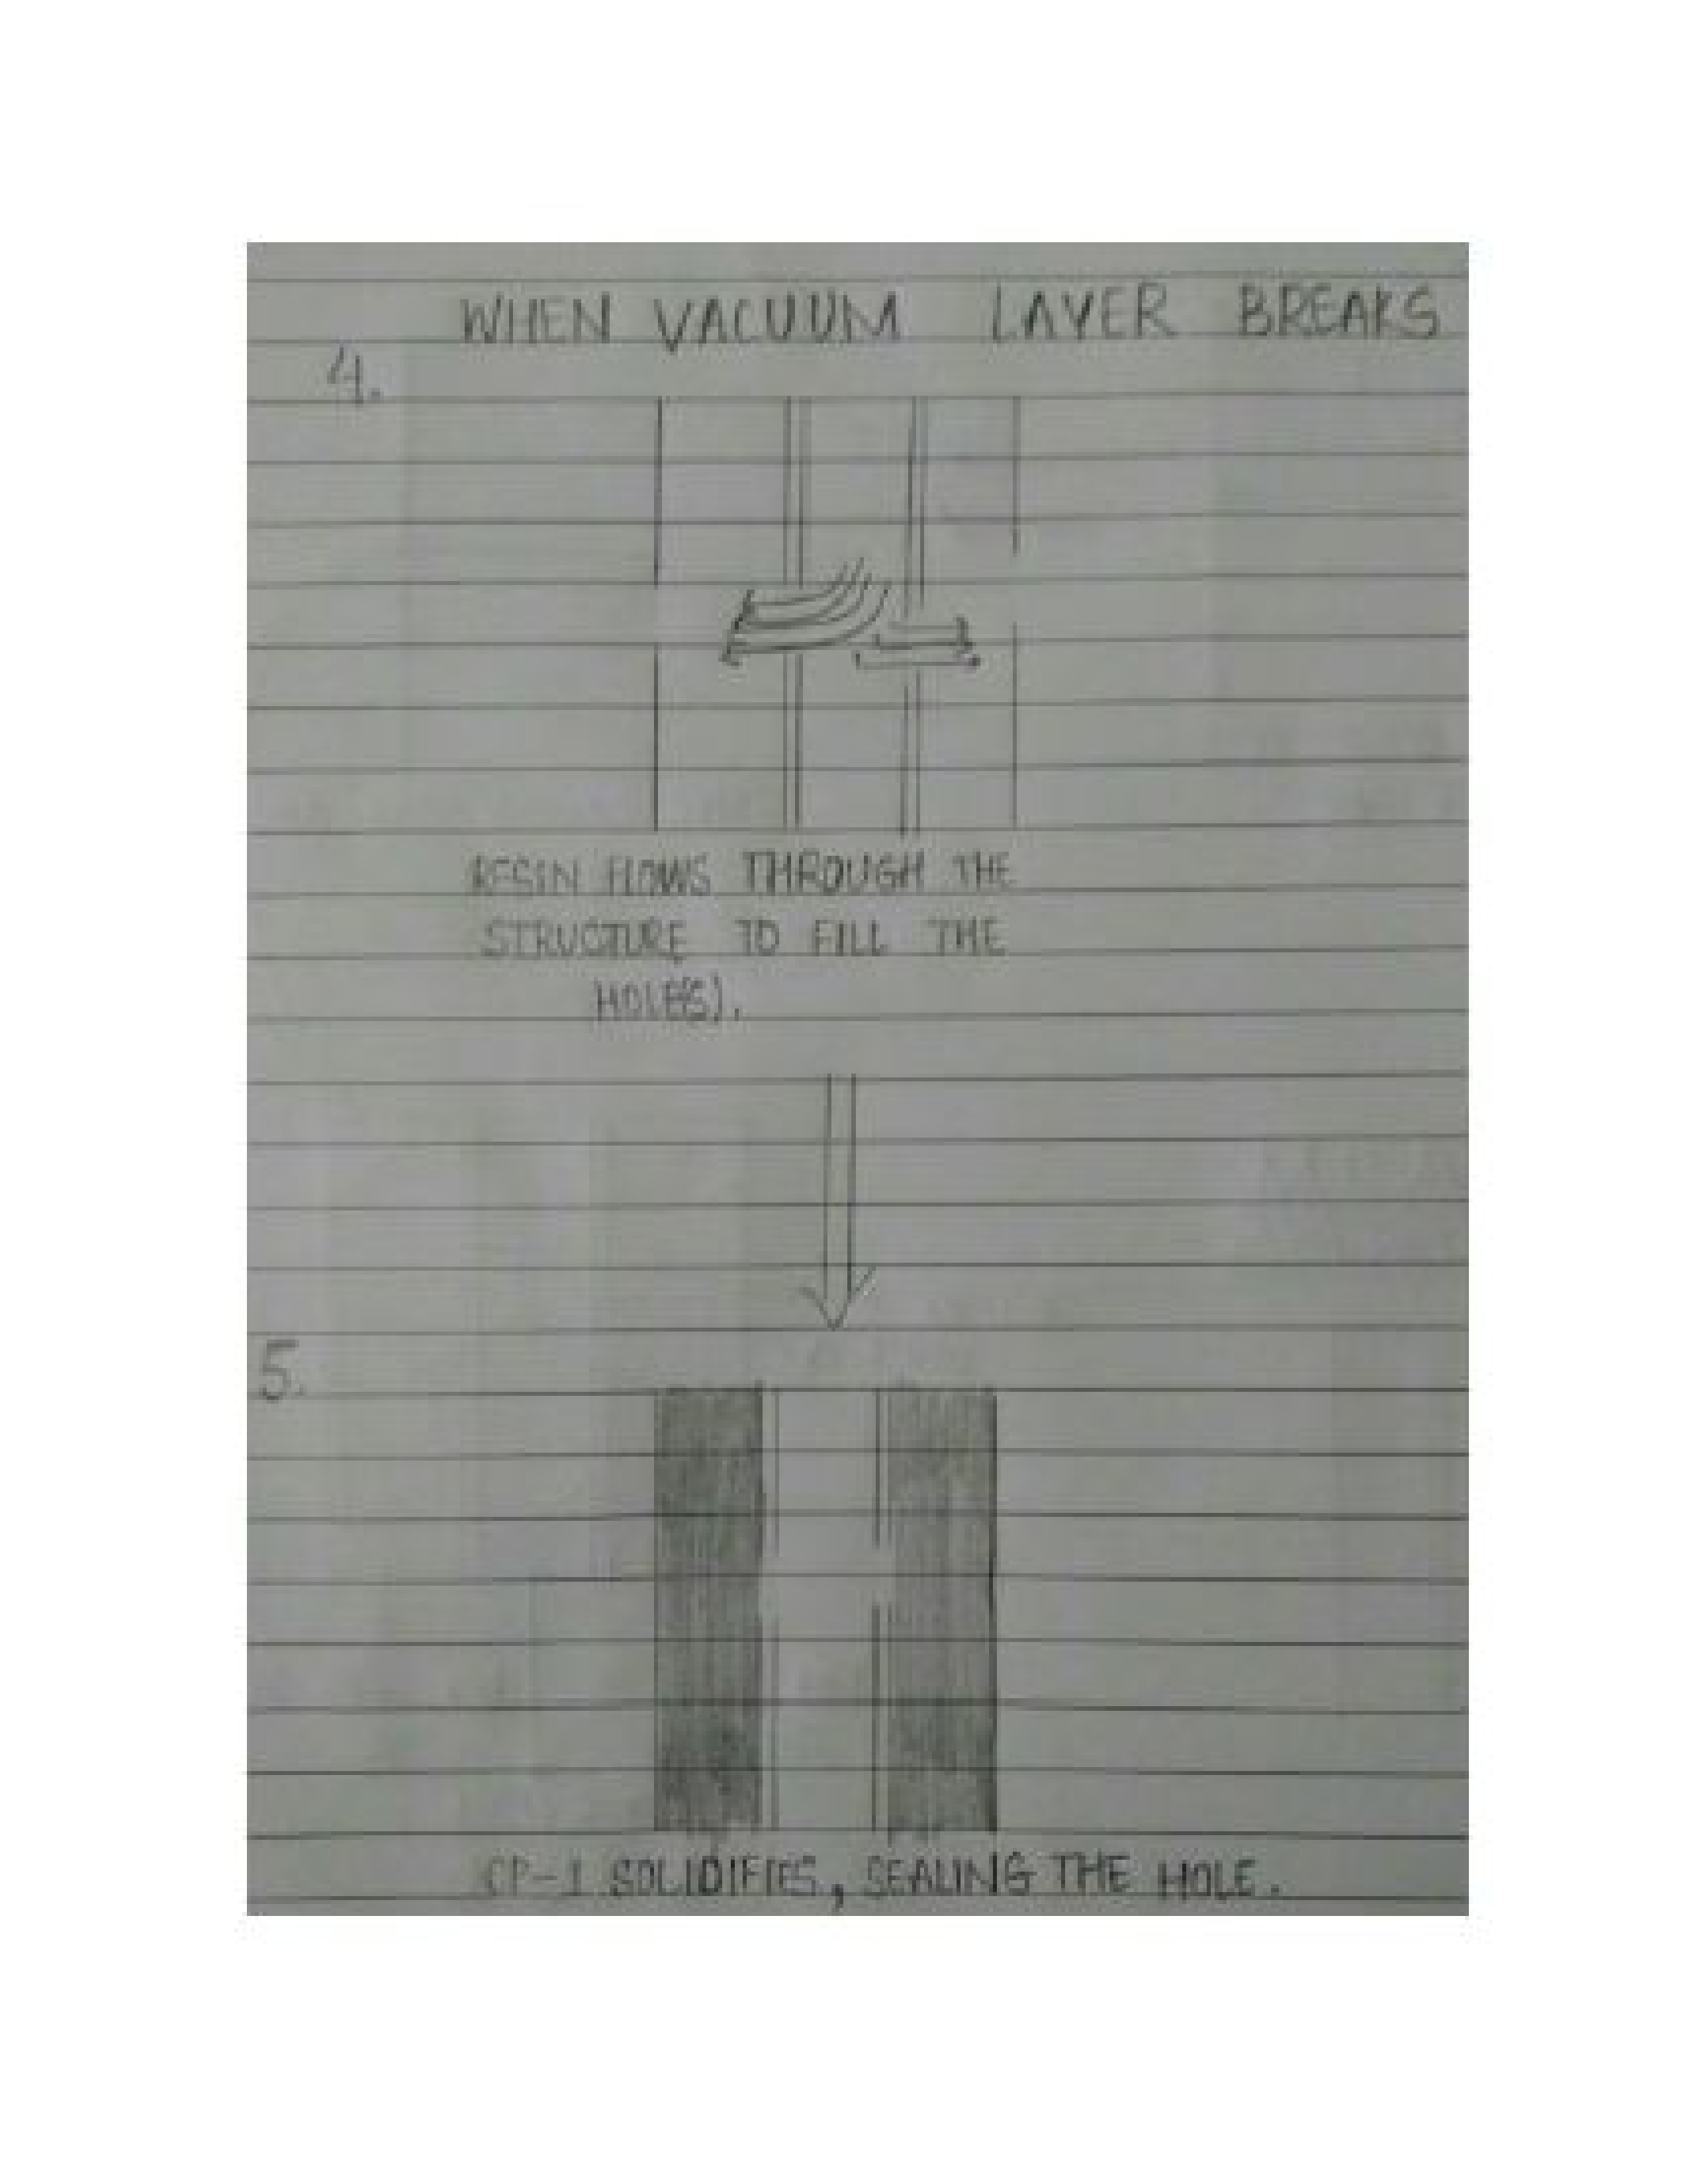 WHEN VACUUM LAYER BREAKS
4.
RESIN FLOWS THROUGH THE
STRUCTURE TO FILL THE
HOLE(S).
5.
CP-1 SOLIDIFIES, SEALING THE HOLE.